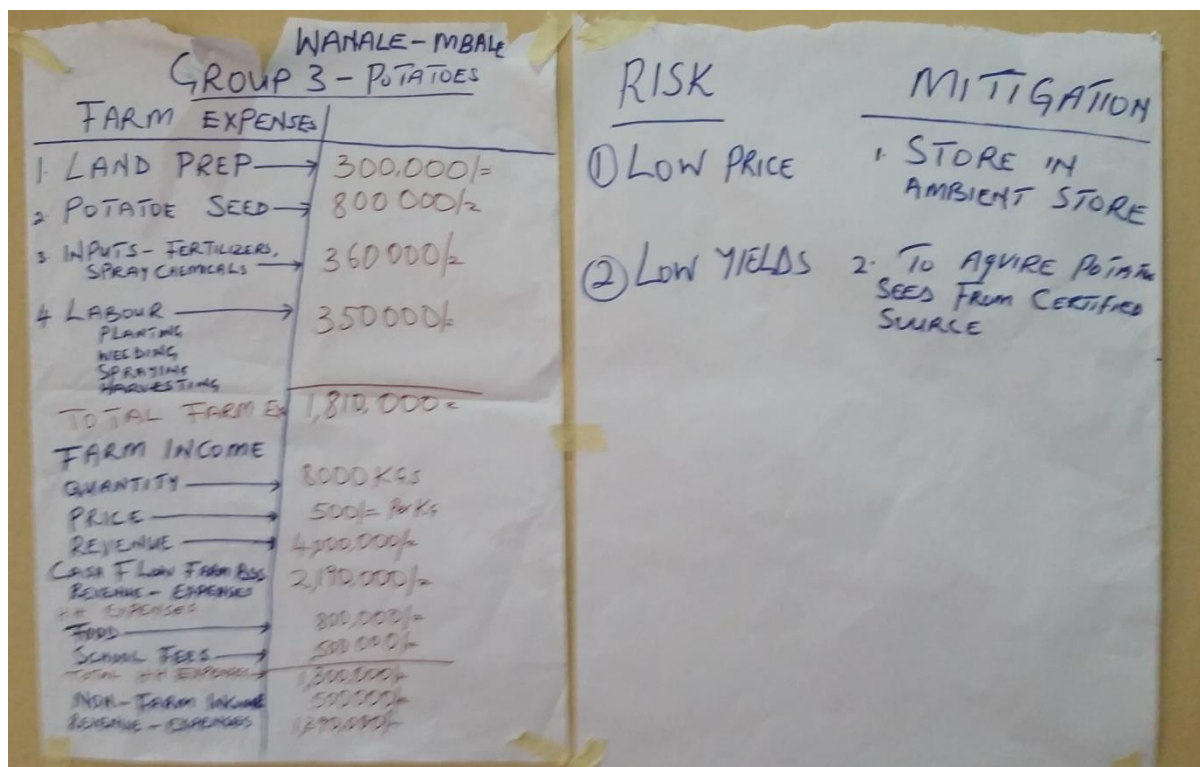 WANALE-MBALE
GROUP 3 - POTATOES
FARM EXPENSES
1. LAND PREP → 300,000/=
2. POTATOE SEED → 800 000/=
3. INPUTS - FERTILIZERS,
SPRAY CHEMICALS → 360 000/=
4 LABOUR → 350000/=
PLANTING
WEEDING
SPRAYING
HARVESTING
TOTAL FARM EX 1,810,000=
FARM INCOME
QUANTITY → 8000 KGS
PRICE → 500/= Per KG
REVENUE → 4,000,000/=
CASH FLOW FARM BSS
REVENUE - EXPENSES 2,190,000/=
HH EXPENSES
FOOD → 800,000/=
SCHOOL FEES → 500 000/=
TOTAL HH EXPENSES → 1,300,000/=
NON-FARM INCOME 500000/=
REVENUE - EXPENSES 1,390,000/=
RISK MITIGATION
① LOW PRICE 1. STORE IN
AMBIENT STORE
② LOW YIELDS 2. TO AQUIRE POTATOE
SEED FROM CERTIFIED
SOURCE